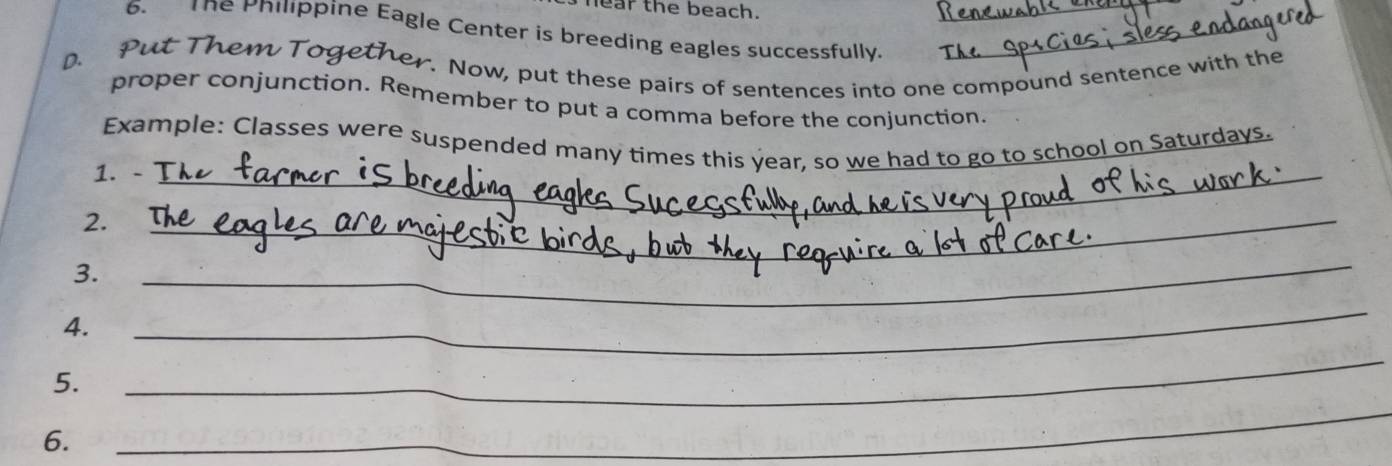 near the beach.
Renewable energy
6. The Philippine Eagle Center is breeding eagles successfully. The species is less endangered
D. Put Them Together. Now, put these pairs of sentences into one compound sentence with the
proper conjunction. Remember to put a comma before the conjunction.
Example: Classes were suspended many times this year, so we had to go to school on Saturdays.
1. - The farmer is breeding eagles Sucessfully, and he is very proud of his work.
2. The eagles are majestic birds, but they require a lot of care.
3.
4.
5.
6.